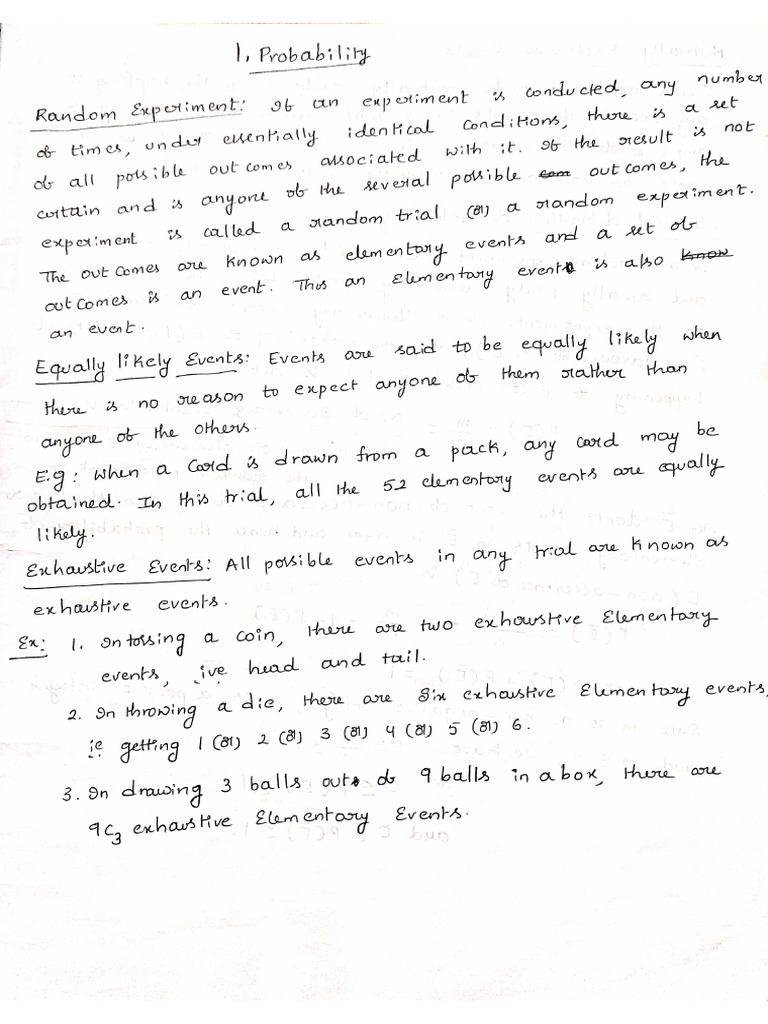 1. Probability
Random Experiment: If an experiment is conducted, any number
of times, under essentially identical conditions, there is a set
of all possible out comes associated with it. If the result is not
certain and is anyone of the several possible com out comes, the
experiment is called a random trial (or) a random experiment.
The out comes are known as elementary events and a set of
out comes is an event. Thus an Elementary event is also know
an event.
Equally likely Events: Events are said to be equally likely when
there is no reason to expect anyone of them rather than
anyone of the others.
E.g: When a Card is drawn from a pack, any card may be
obtained. In this trial, all the 52 elementary events are equally
likely.
Exhaustive Events: All possible events in any trial are known as
exhaustive events.
Ex: 1. In tossing a coin, there are two exhaustive Elementary
events, ive head and tail.
2. In throwing a die, there are Six exhaustive Elementary events,
ie getting 1 (or) 2 (or) 3 (or) 4 (or) 5 (or) 6.
3. In drawing 3 balls out of 9 balls in a box, there are
9C3 exhaustive Elementary Events.